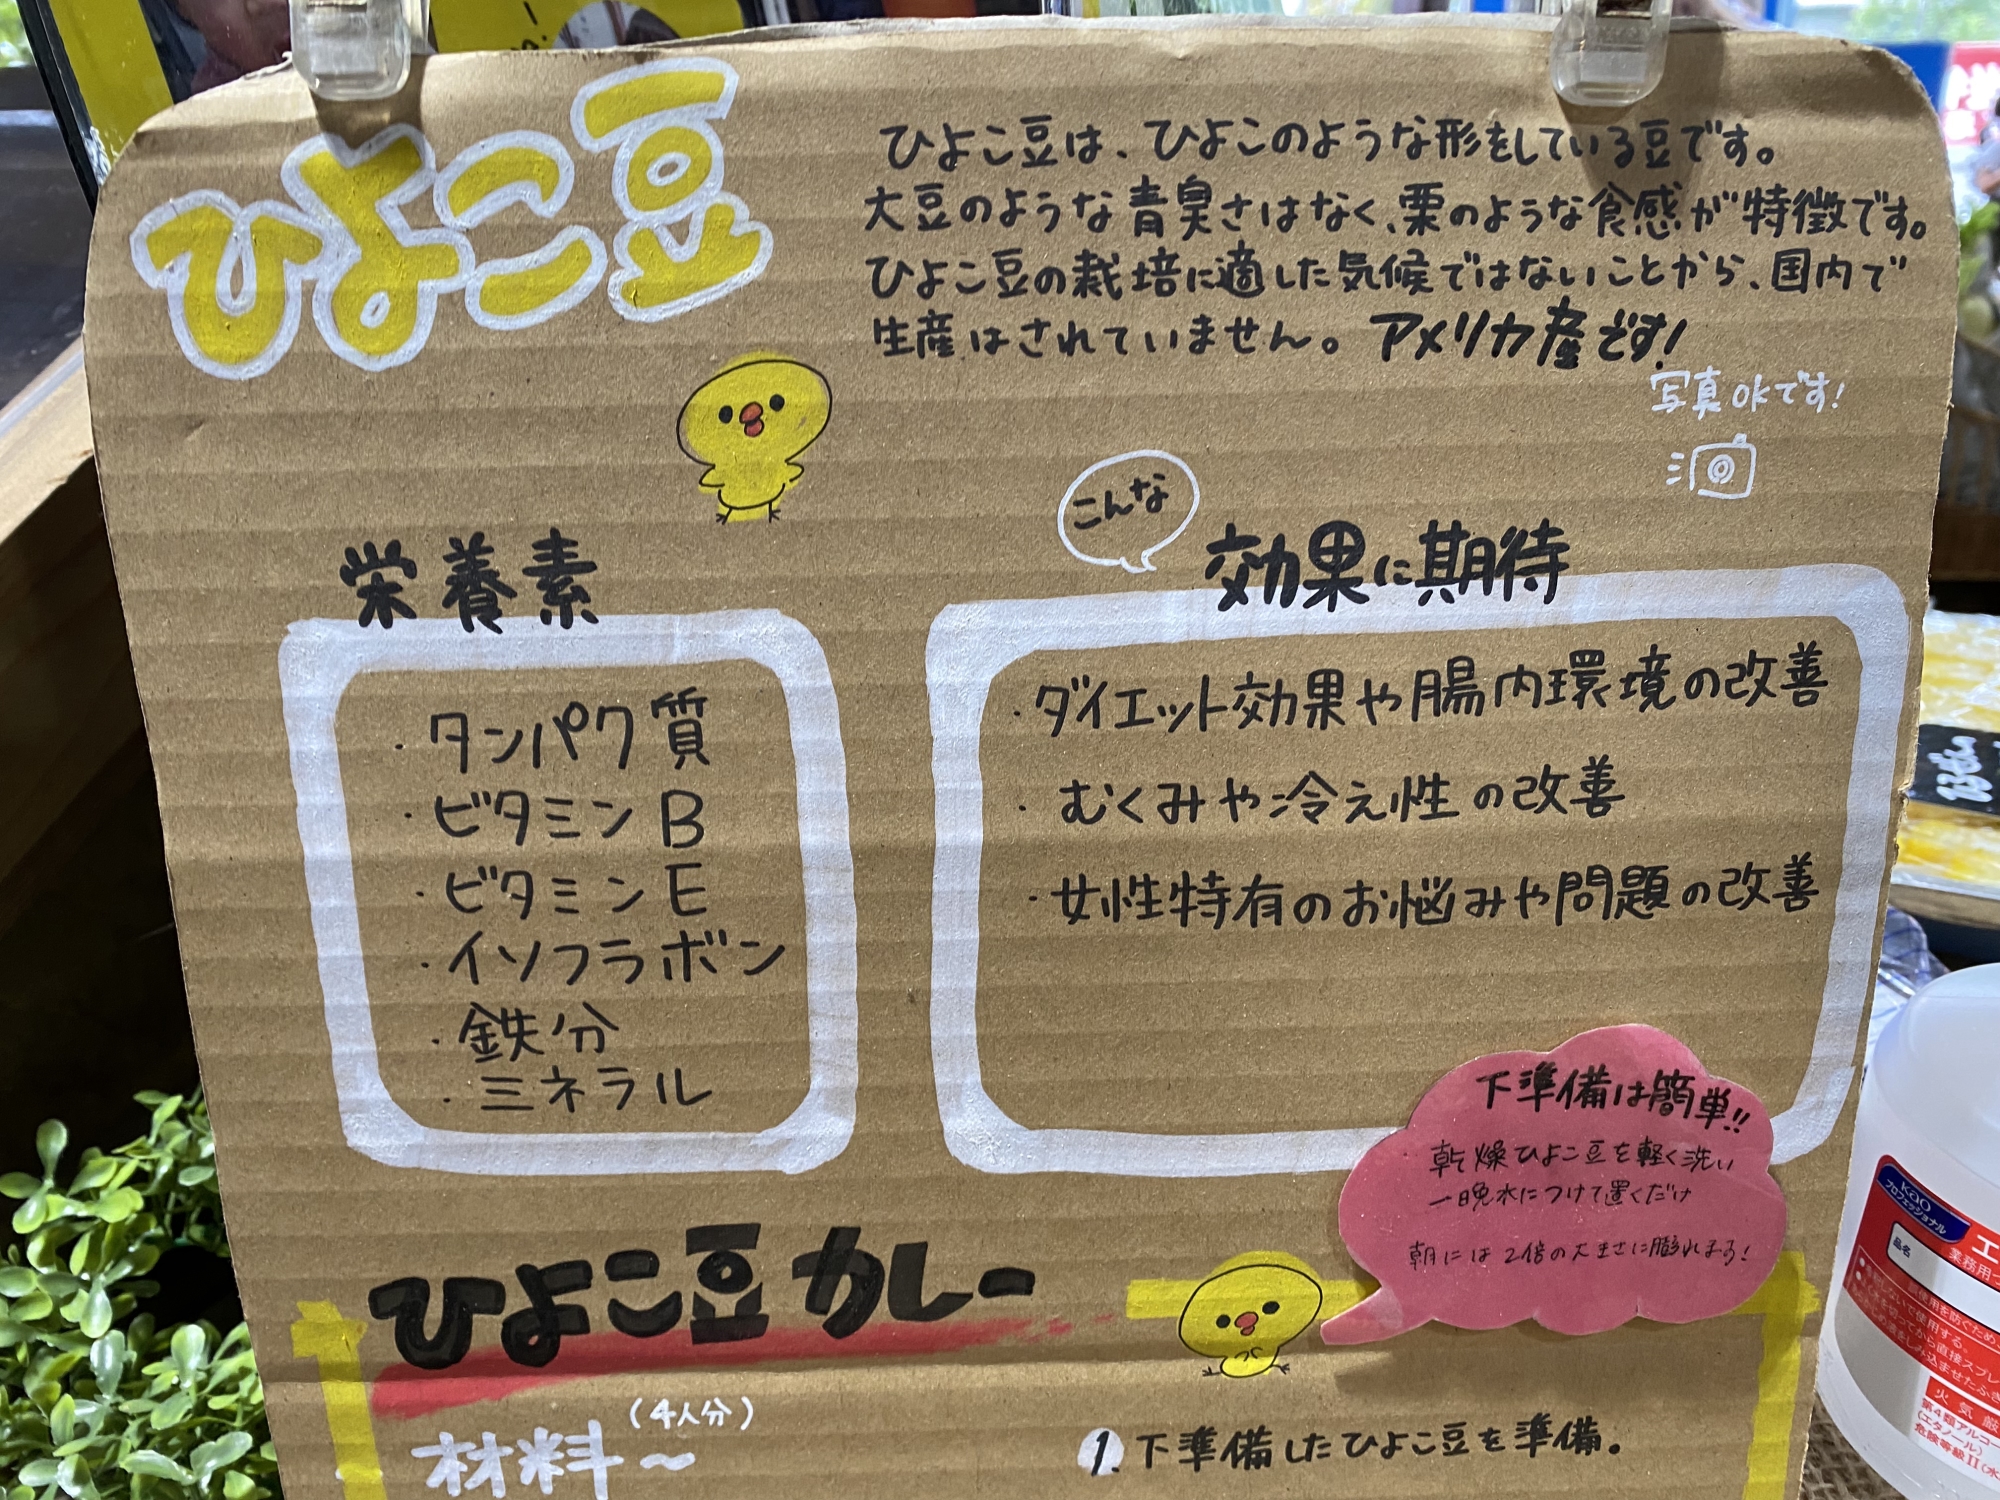 ひよこ豆
ひよこ豆は、ひよこのような形をしている豆です。
大豆のような青臭さはなく、栗のような食感が特徴です。
ひよこ豆の栽培に適した気候ではないことから、国内で
生産はされていません。アメリカ産です!
写真OKです!
栄養素
・タンパク質
・ビタミンB
・ビタミンE
・イソフラボン
・鉄分
・ミネラル
こんな
効果に期待
・ダイエット効果や腸内環境の改善
・むくみや冷え性の改善
・女性特有のお悩みや問題の改善
下準備は簡単!!
乾燥ひよこ豆を軽く洗い
一晩水につけて置くだけ
朝には2倍の大きさに膨れます!
ひよこ豆カレー
材料～
(4人分)
1. 下準備したひよこ豆を準備。
Kao
プロフェッショナル
品名
業務用
火気厳
第4類アルコー
(エタノール)
危険等級II(水